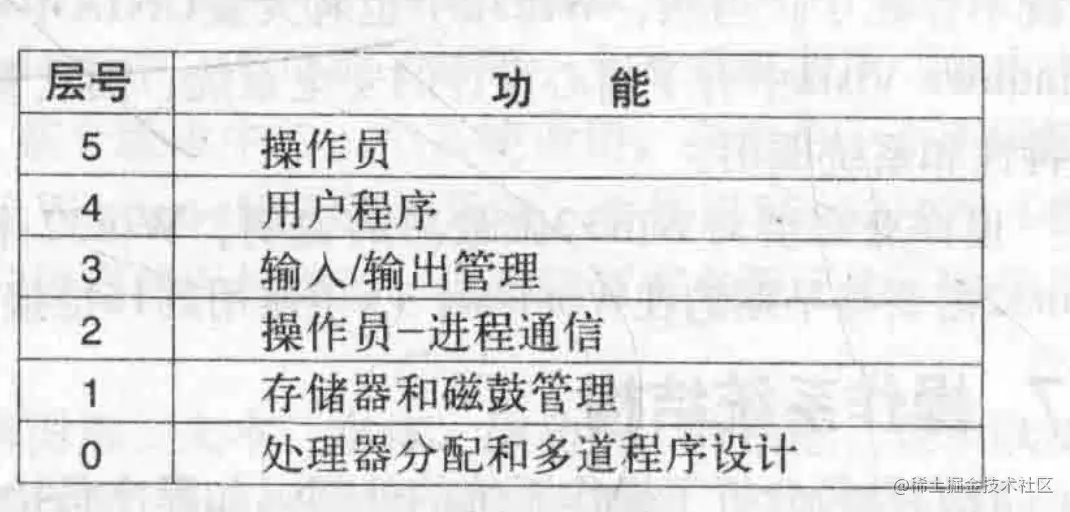 层号 功 能
5 操作员
4 用户程序
3 输入/输出管理
2 操作员-进程通信
1 存储器和磁鼓管理
0 处理器分配和多道程序设计
@稀土掘金技术社区